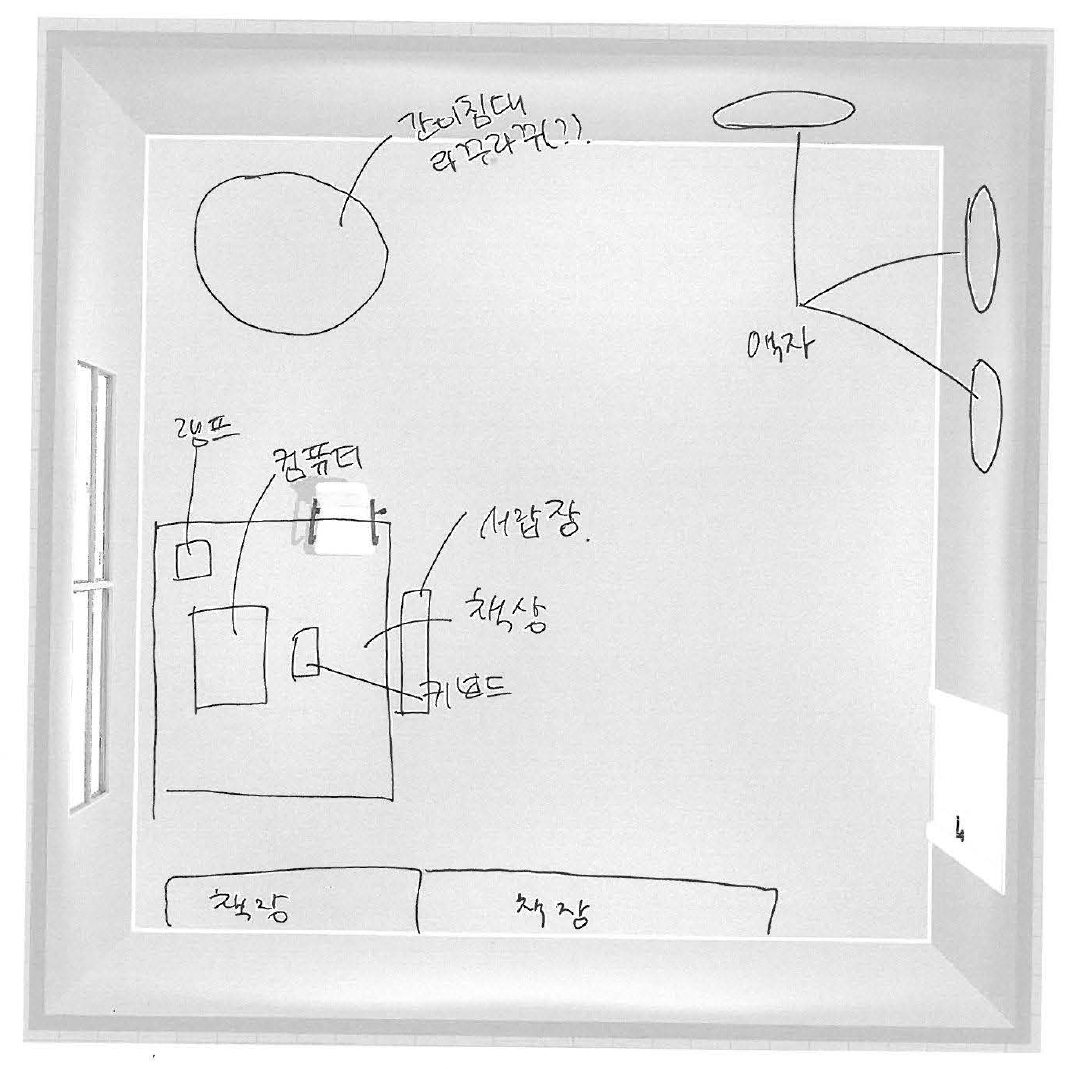 간이침대
라꾸라꾸(?).
액자
램프
컴퓨터
서랍장.
책상
키보드
책장
책장